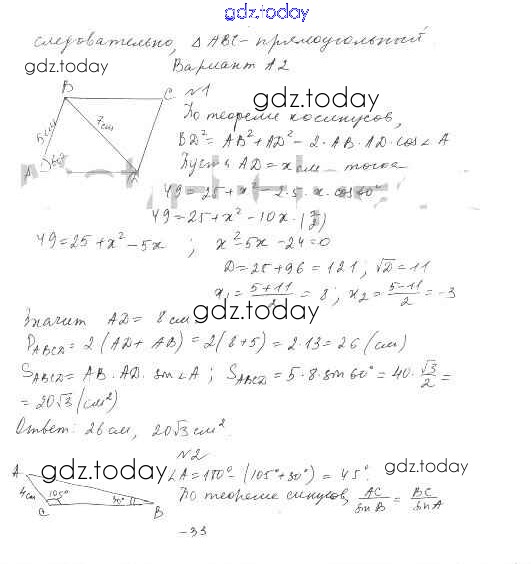 gdz.today
следовательно, ΔABC - прямоугольный.
gdz.today
Вариант А2
B C
5 см 7 см
A 60°
№1
gdz.today
По теореме косинусов,
BD² = AB² + AD² - 2·AB·AD·cos∠A
Пусть AD = x см, тогда
49 = 25 + x² - 2·5·x·cos 60°
49 = 25 + x² - 10x·(½)
49 = 25 + x² - 5x ; x² - 5x - 24 = 0
D = 25 + 96 = 121 ; √D = 11
x₁ = (5+11)/2 = 8 ; x₂ = (5-11)/2 = -3
Значит AD = 8 см
gdz.today
P_ABCD = 2(AD + AB) = 2(8+5) = 2·13 = 26 (см)
S_ABCD = AB·AD·sin∠A ; S_ABCD = 5·8·sin 60° = 40·√3/2 =
= 20√3 (см²)
Ответ: 26 см, 20√3 см².
№2
gdz.today
∠A = 180° - (105° + 30°) = 45°.
gdz.today
A 4 см 105° 30° C B
По теореме синусов, AC/sin B = BC/sin A
-33